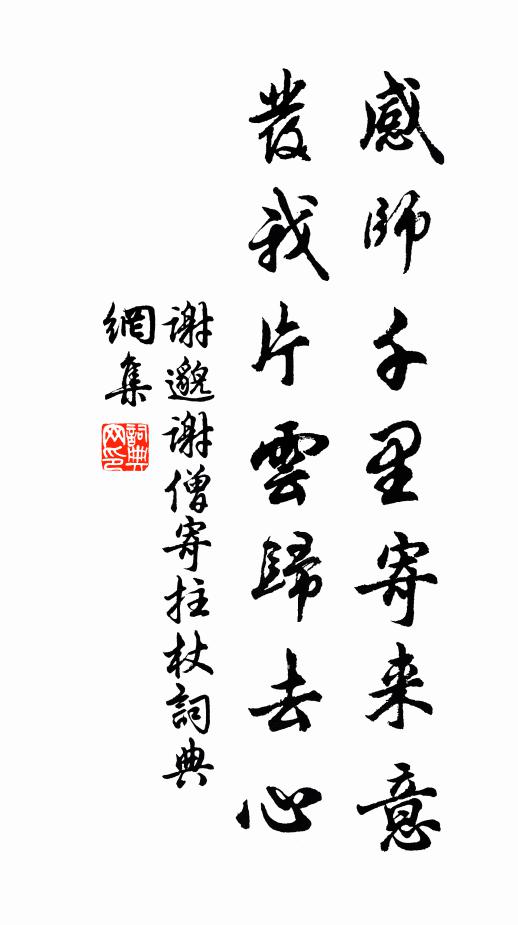 感師千里寄来意
發我片雲歸去心
謝邈謝僧寄拄杖詞典
網集
詞典
网印